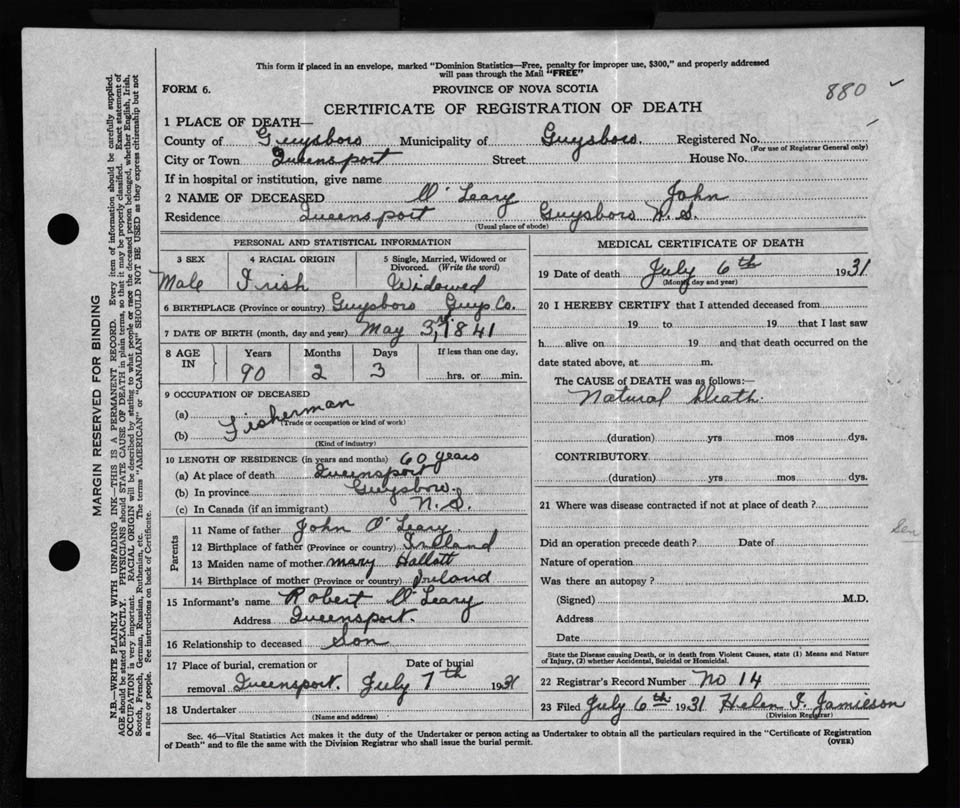 This form if placed in an envelope, marked "Dominion Statistics—Free, penalty for improper use, $300," and properly addressed
will pass through the Mail "FREE"
FORM 6.
PROVINCE OF NOVA SCOTIA
880
CERTIFICATE OF REGISTRATION OF DEATH
1 PLACE OF DEATH—
County of Guysboro Municipality of Guysboro. Registered No.
(For use of Registrar General only)
City or Town Queensport Street House No.
If in hospital or institution, give name
2 NAME OF DECEASED O'Leary John
Residence Queensport Guysboro N.S.
(Usual place of abode)
PERSONAL AND STATISTICAL INFORMATION
3 SEX 4 RACIAL ORIGIN 5 Single, Married, Widowed or Divorced. (Write the word)
Male Irish Widowed
6 BIRTHPLACE (Province or country) Guysboro Guys Co.
7 DATE OF BIRTH (month, day and year) May 3rd, 1841
8 AGE IN Years Months Days If less than one day,
90 2 3 hrs. or min.
9 OCCUPATION OF DECEASED
(a) Fisherman
(Trade or occupation or kind of work)
(b)
(Kind of industry)
10 LENGTH OF RESIDENCE (in years and months) 60 years
(a) At place of death Queensport
(b) In province Guysboro.
(c) In Canada (if an immigrant) N.S.
Parents
11 Name of father John O'Leary.
12 Birthplace of father (Province or country) Ireland
13 Maiden name of mother Mary
14 Birthplace of mother (Province or country) Ireland
15 Informant's name Robert O'Leary
Address Queensport.
16 Relationship to deceased Son
17 Place of burial, cremation or removal Queensport. Date of burial July 7th 1931
18 Undertaker
(Name and address)
MEDICAL CERTIFICATE OF DEATH
19 Date of death July 6th 1931
(Month, day and year)
20 I HEREBY CERTIFY that I attended deceased from
19 to 19 that I last saw
h alive on 19 and that death occurred on the
date stated above, at m.
The CAUSE OF DEATH was as follows:—
Natural Death.
(duration) yrs mos dys.
CONTRIBUTORY.
(duration) yrs mos dys.
21 Where was disease contracted if not at place of death?
Did an operation precede death? Date of
Nature of operation
Was there an autopsy?
(Signed) M.D.
Address
Date
State the Disease causing Death, or in death from Violent Causes, state (1) Means and Nature
of Injury, (2) whether Accidental, Suicidal or Homicidal.
22 Registrar's Record Number No 14
23 Filed July 6th 1931 Helen F. Jamieson
(Division Registrar)
Sec. 46—Vital Statistics Act makes it the duty of the Undertaker or person acting as Undertaker to obtain all the particulars required in the "Certificate of Registration
of Death" and to file the same with the Division Registrar who shall issue the burial permit.
(OVER)
MARGIN RESERVED FOR BINDING
N.B.—WRITE PLAINLY WITH UNFADING INK—THIS IS A PERMANENT RECORD. Every item of information should be carefully supplied.
AGE should be stated EXACTLY. PHYSICIANS should STATE CAUSE OF DEATH in plain terms, so that it may be properly classified. Exact statement of
OCCUPATION is very important. RACIAL ORIGIN will be described by stating to what people or race the deceased person belonged, whether English, Irish,
Scotch, French, German, Russian, Ruthenian, etc. The terms "AMERICAN" or "CANADIAN" SHOULD NOT BE USED as they express citizenship but not
a race or people. See instructions on back of Certificate.